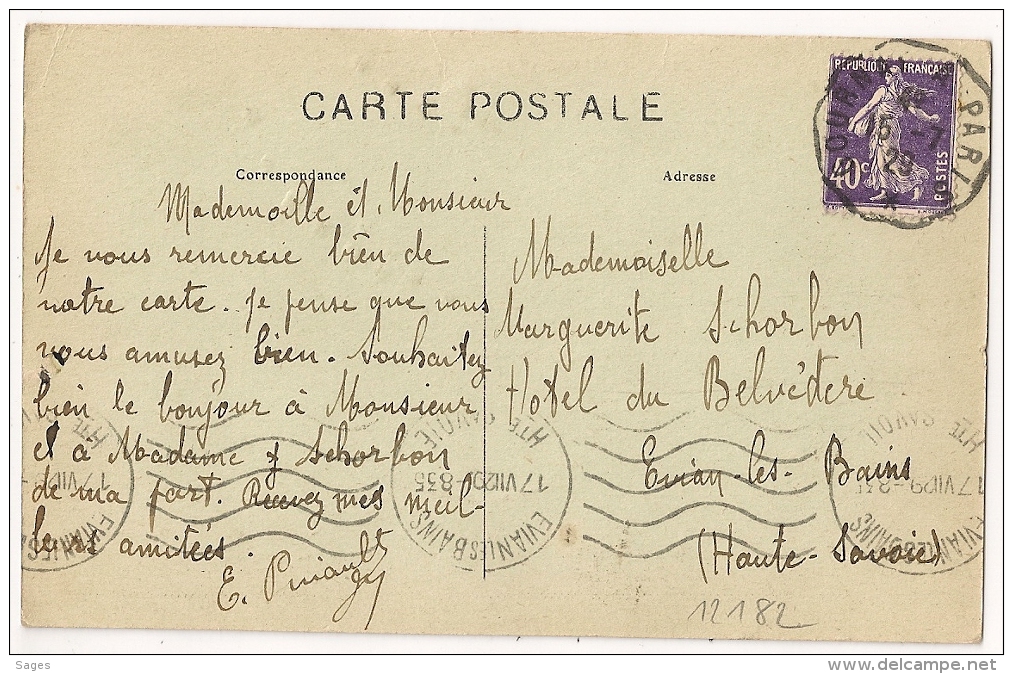 CARTE POSTALE
Correspondance
Mademoille et Monsieur
Je vous remercie bien de
votre carte. Je pense que vous
vous amusez bien. Souhaitez
bien le boujour à Monsieur
et à Madame Schorbon
de ma part. Recevez mes meil-
leurs amitées.
E.
Adresse
Mademoiselle
Marguerite Schorbon
Hôtel du Belvédère
Evian-les-Bains
(Haute-Savoie)
12182
REPUBLIQUE FRANÇAISE
40c
POSTES
PARI
15 -7
29
EVIAN LES BAINS
17 VII 29 - 8 35
HTE SAVOIE
Sages
www.delcampe.net